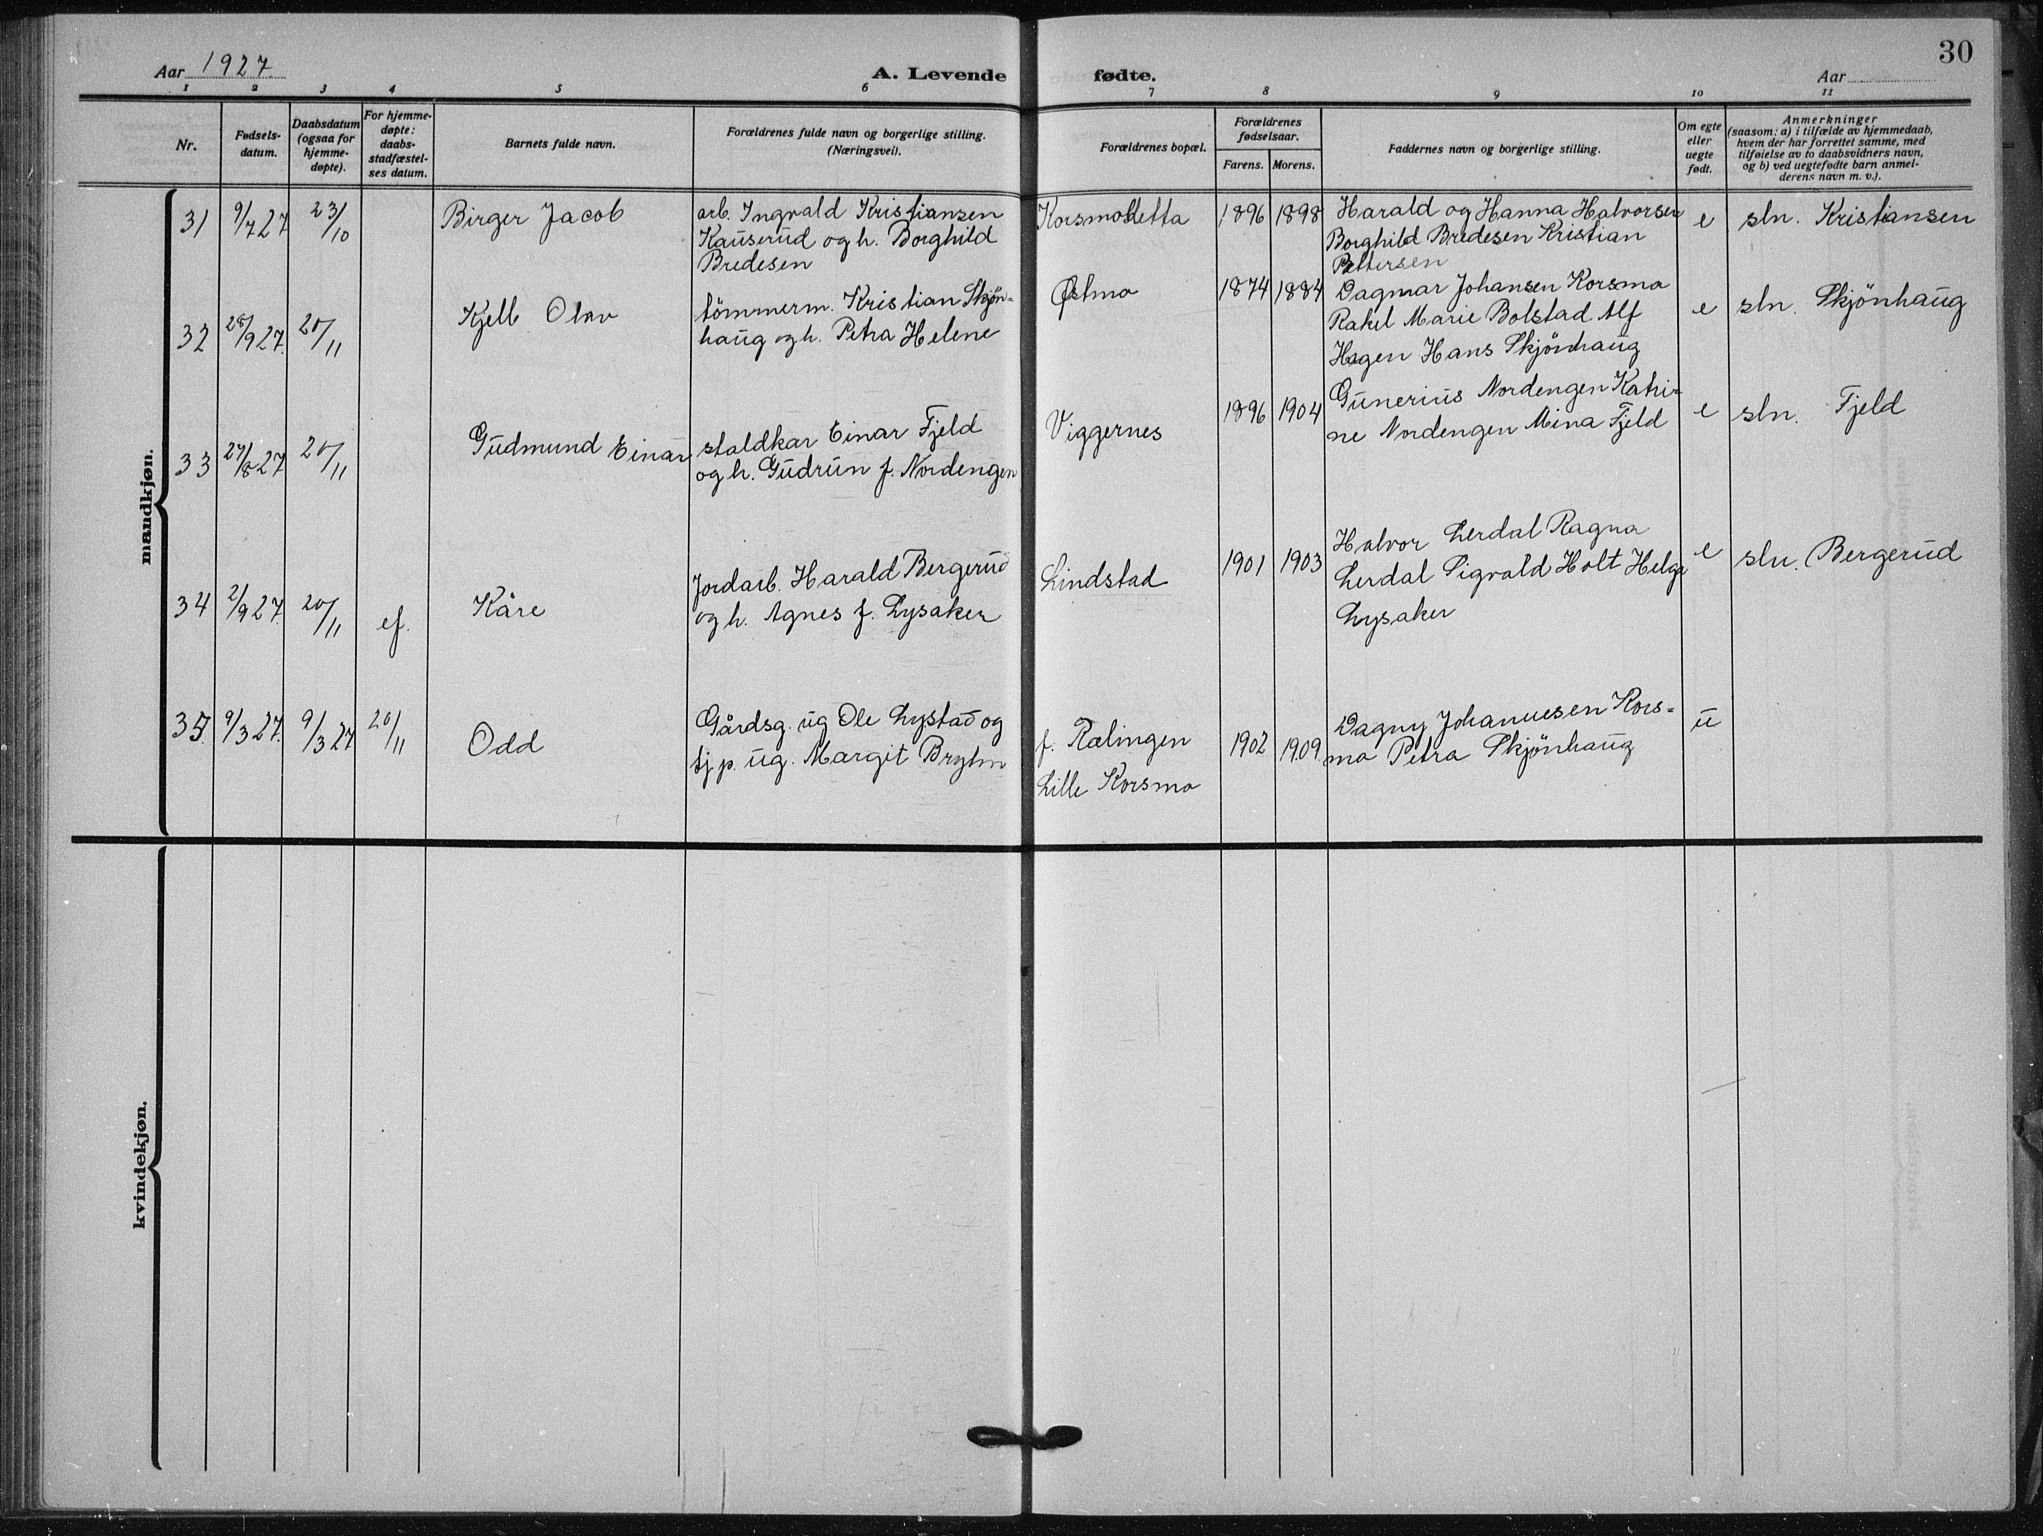 30
Aar 1927.
A. Levende fødte.
Aar
1 2 3 4 5 6 7 8 9 10 11
Nr.
Fødsels-
datum.
Daabsdatum
(ogsaa for
hjemme-
døpte).
For hjemme-
døpte:
daabs-
stadfæstel-
ses datum.
Barnets fulde navn.
Forældrenes fulde navn og borgerlige stilling.
(Næringsvei).
Forældrenes bopæl.
Forældrenes
fødselsaar.
Farens. Morens.
Faddernes navn og borgerlige stilling.
Om egte
eller
uegte
født.
Anmerkninger
(saasom: a) i tilfælde av hjemmedaab,
hvem der har forrettet samme, med
tilføielse av to daabsvidners navn,
og b) ved uegtefødte barn anmel-
derens navn m. v.).
mandkjøn.
31 9/7 27 23/10
Birger Jacob
arb. Ingvald Kristiansen
Kauserud og h. Borghild
Bredesen
Korsmosletta
1896 1898
Harald og Hanna Halvorsen
Borghild Bredesen Kristian
Pettersen
e
sln. Kristiansen
32 28/9 27. 20/11
Kjell Olav
tömmerm. Kristian Skjøn-
haug og h. Petra Helene
Østmo
1874 1884
Dagmar Johansen Korsmo
Rakel Marie Bolstad Alf
Hagen Hans Skjönhaug
e
sln. Skjönhaug
33 27/8 27 20/11
Gudmund Einar
staldkar Einar Fjeld
og h. Gudrun f. Nordengen
Viggernes
1896 1904
Gunerius Nordengen Katri-
ne Nordengen Mina Fjeld
e
sln. Fjeld
34 2/9 27. 20/11 ef.
Kåre
Jordarb. Harald Bergerud
og h. Agnes f. Lysaker
Lindstad
1901 1903
Halvor Lerdal Ragna
Lerdal Sigvald Holt Helga
Lysaker
e
sln. Bergerud
35. 9/3 27. 9/3 27 20/11
Odd
Gårdsg. ug Ole Lystad og
tj.p. ug. Margit Brylm
f. Rælingen
Lille Korsmo
1902 1909
Dagny Johannesen Kors-
mo Petra Skjönhaug
u
kvindekjøn.